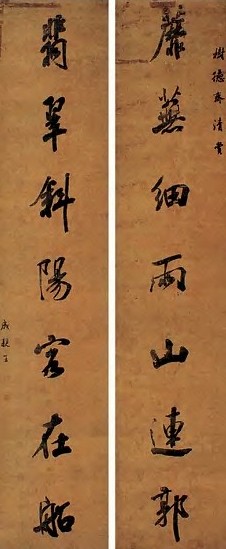 樹德齋清賞
蘼蕪細雨山連郭
翡翠斜陽客在船
成親王